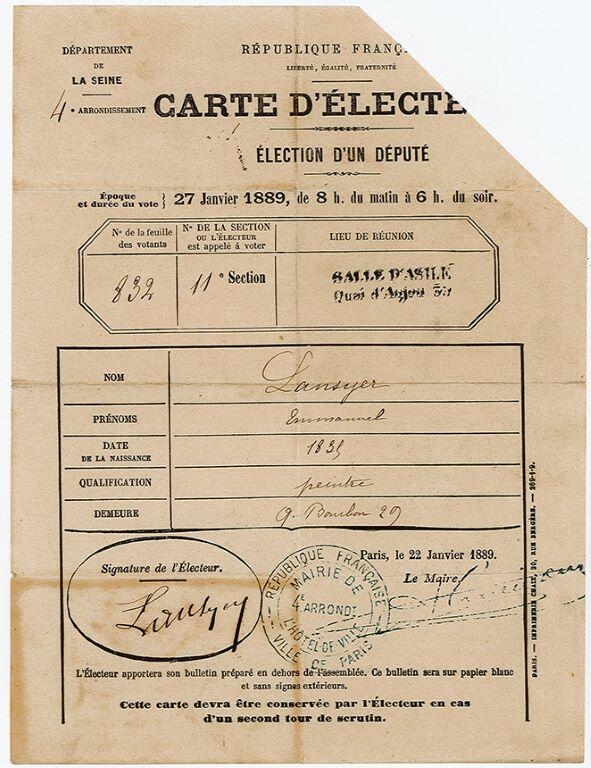 DÉPARTEMENT
DE
LA SEINE
4e ARRONDISSEMENT
RÉPUBLIQUE FRANÇ
LIBERTÉ, ÉGALITÉ, FRATERNITÉ
CARTE D'ÉLECTE
ÉLECTION D'UN DÉPUTÉ
Époque
et durée du vote } 27 Janvier 1889, de 8 h. du matin à 6 h. du soir.
No de la feuille
des votants
No DE LA SECTION
OU L'ÉLECTEUR
est appelé à voter
LIEU DE RÉUNION
832
11e Section
SALLE D'ASILE
Quai d'Anjou
NOM
Lansyer
PRÉNOMS
Emmanuel
DATE
DE LA NAISSANCE
1835
QUALIFICATION
peintre
DEMEURE
q. Bourbon 29
Signature de l'Électeur.
Lansyer
Paris, le 22 Janvier 1889.
Le Maire,
RÉPUBLIQUE FRANÇAISE
MAIRIE DE
4E ARRONDT
L'HÔTEL DE VILLE
VILLE DE PARIS
L'Électeur apportera son bulletin préparé en dehors de l'assemblée. Ce bulletin sera sur papier blanc
et sans signes extérieurs.
Cette carte devra être conservée par l'Électeur en cas
d'un second tour de scrutin.
PARIS. — IMPRIMERIE CHAIX, 20, RUE BERGÈRE. — 269-1-9.